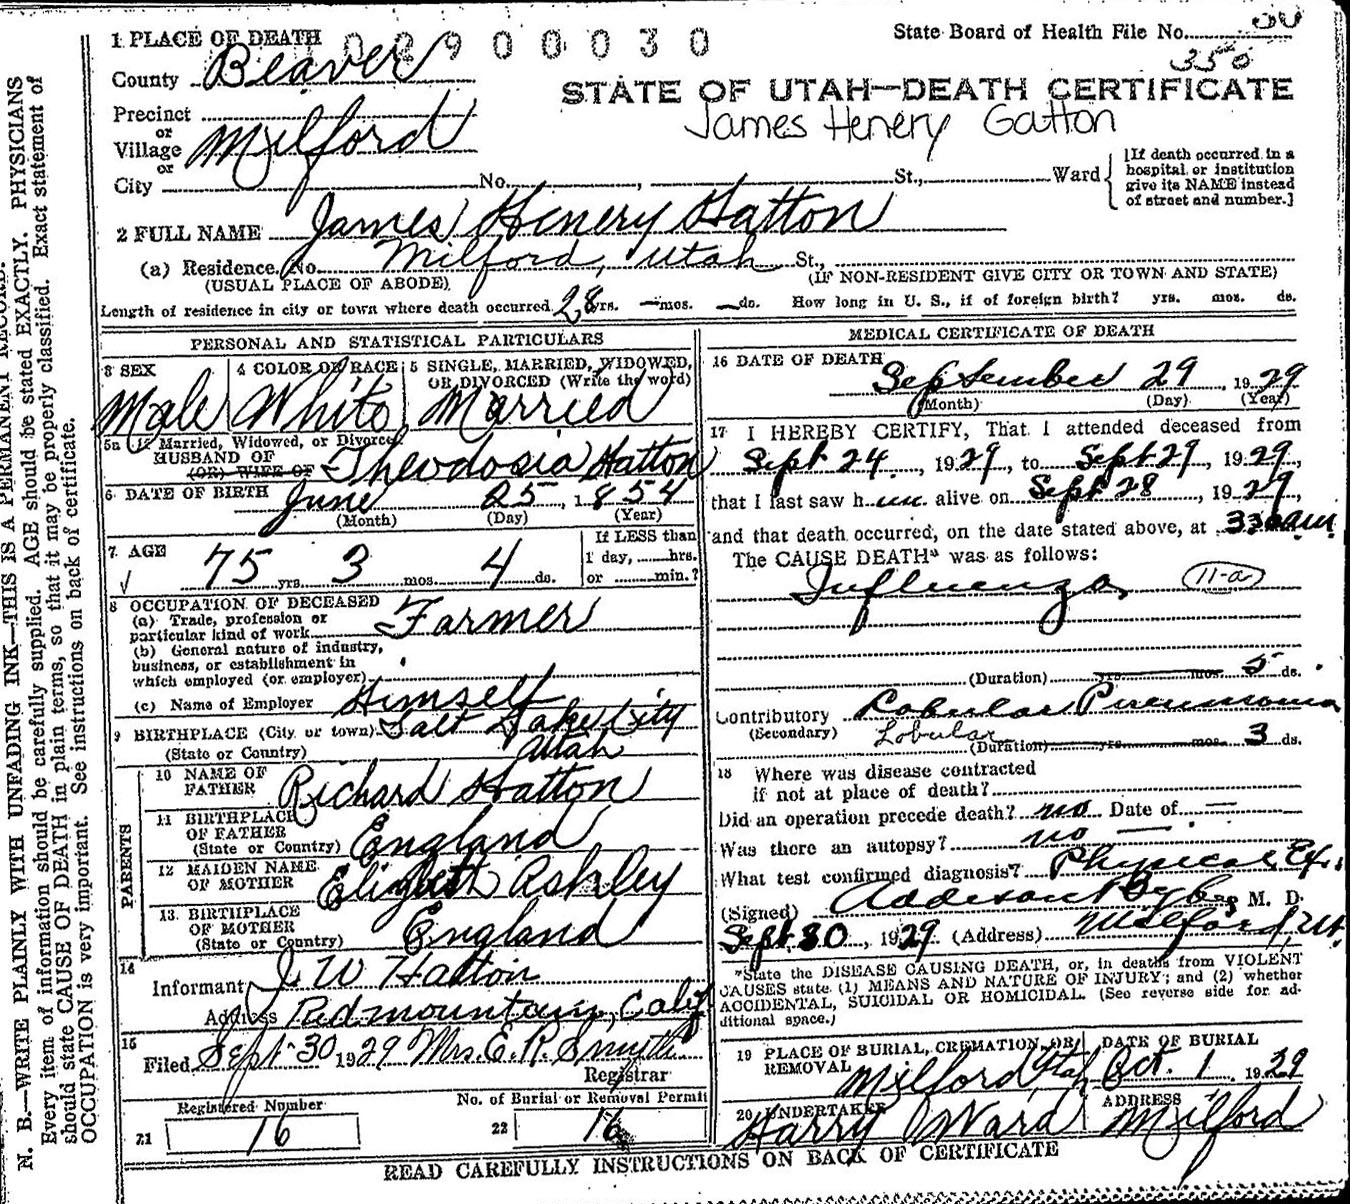 1 PLACE OF DEATH
02900030
State Board of Health File No.
350
County Beaver
STATE OF UTAH—DEATH CERTIFICATE
James Henery Gatton
Precinct
or
Village Milford
or
City No. , St., Ward
[If death occurred in a
hospital or institution
give its NAME instead
of street and number.]
2 FULL NAME James Hinery Hatton
(a) Residence. No. Milford, Utah St.,
(USUAL PLACE OF ABODE)
(IF NON-RESIDENT GIVE CITY OR TOWN AND STATE)
Length of residence in city or town where death occurred 28 yrs. — mos. — ds. How long in U. S., if of foreign birth? yrs. mos. ds.
PERSONAL AND STATISTICAL PARTICULARS
3 SEX
Male
4 COLOR OR RACE
White
5 SINGLE, MARRIED, WIDOWED,
OR DIVORCED (Write the word)
Married
5a If Married, Widowed, or Divorced
HUSBAND OF
(OR) WIFE OF
Theodosia Hatton
6 DATE OF BIRTH June 25, 1854
(Month) (Day) (Year)
7 AGE
75 yrs. 3 mos. 4 ds.
If LESS than
1 day, hrs.
or min.?
8 OCCUPATION OF DECEASED
(a) Trade, profession or
particular kind of work Farmer
(b) General nature of industry,
business, or establishment in
which employed (or employer)
(c) Name of Employer Himself
9 BIRTHPLACE (City or town) Salt Lake City
(State or Country) Utah
PARENTS
10 NAME OF
FATHER Richard Hatton
11 BIRTHPLACE
OF FATHER
(State or Country) England
12 MAIDEN NAME
OF MOTHER Elizabeth Ashley
13 BIRTHPLACE
OF MOTHER
(State or Country) England
14
Informant J W Hatton
Address Redmountain, Calif
15
Filed Sept 30 1929 Mrs. E. R. Smyth
Registrar
Registered Number
21 16
No. of Burial or Removal Permit
22 16
MEDICAL CERTIFICATE OF DEATH
16 DATE OF DEATH
September 29, 1929
(Month) (Day) (Year)
17 I HEREBY CERTIFY, That I attended deceased from
Sept 24, 1929, to Sept 29, 1929,
that I last saw h im alive on Sept 28, 1929,
and that death occurred, on the date stated above, at 330 am.
The CAUSE DEATH* was as follows:
Influenza 11-a
(Duration) yrs. mos. 5 ds.
Contributory Lobular Pneumonia
(Secondary) Lobular
(Duration) yrs. mos. 3 ds.
18 Where was disease contracted
if not at place of death?
Did an operation precede death? no Date of —
Was there an autopsy? no —
What test confirmed diagnosis? Physical Ex.
(Signed) Addison Bybee, M. D.
Sept. 30, 1929. (Address) Milford, Ut.
*State the DISEASE CAUSING DEATH, or, in deaths from VIOLENT
CAUSES state (1) MEANS AND NATURE OF INJURY; and (2) whether
ACCIDENTAL, SUICIDAL OR HOMICIDAL. (See reverse side for ad-
ditional space.)
19 PLACE OF BURIAL, CREMATION, OR
REMOVAL
Milford Utah
DATE OF BURIAL
Oct. 1 1929
20 UNDERTAKER
Harry Ward
ADDRESS
Milford
READ CAREFULLY INSTRUCTIONS ON BACK OF CERTIFICATE
N. B.—WRITE PLAINLY WITH UNFADING INK—THIS IS A PERMANENT RECORD.
Every item of information should be carefully supplied. AGE should be stated EXACTLY. PHYSICIANS
should state CAUSE OF DEATH in plain terms, so that it may be properly classified. Exact statement of
OCCUPATION is very important. See instructions on back of certificate.